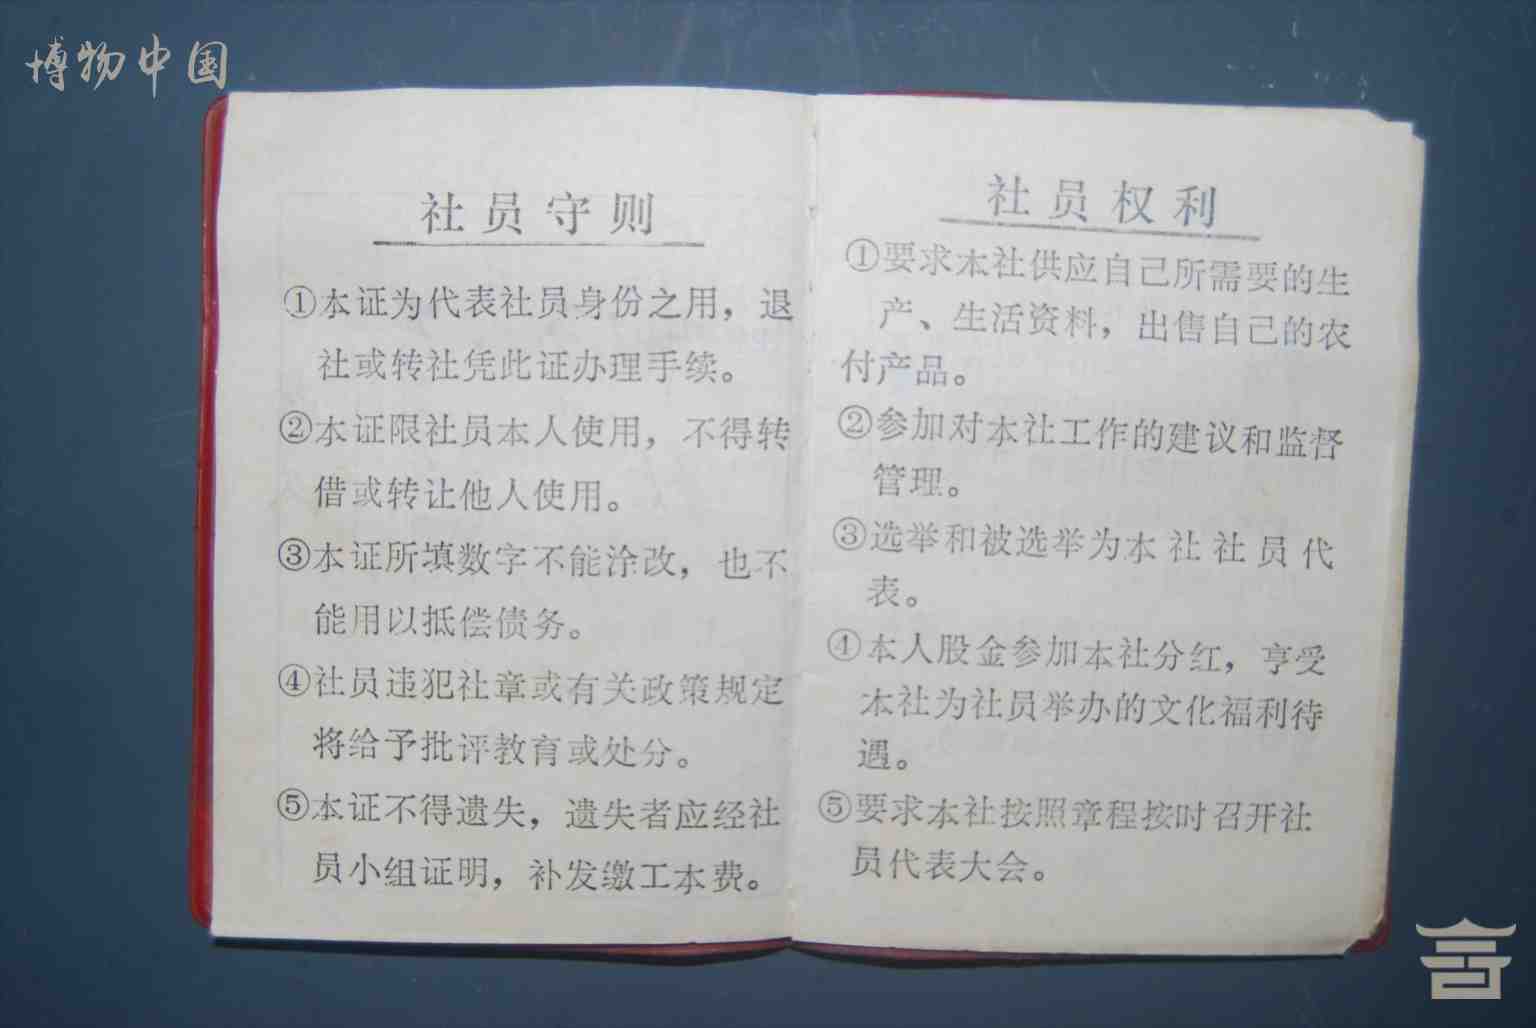 博物中国
社员守则
①本证为代表社员身份之用，退
社或转社凭此证办理手续。
②本证限社员本人使用，不得转
借或转让他人使用。
③本证所填数字不能涂改，也不
能用以抵偿债务。
④社员违犯社章或有关政策规定
将给予批评教育或处分。
⑤本证不得遗失，遗失者应经社
员小组证明，补发缴工本费。
社员权利
①要求本社供应自己所需要的生
产、生活资料，出售自己的农
付产品。
②参加对本社工作的建议和监督
管理。
③选举和被选举为本社社员代
表。
④本人股金参加本社分红，享受
本社为社员举办的文化福利待
遇。
⑤要求本社按照章程按时召开社
员代表大会。